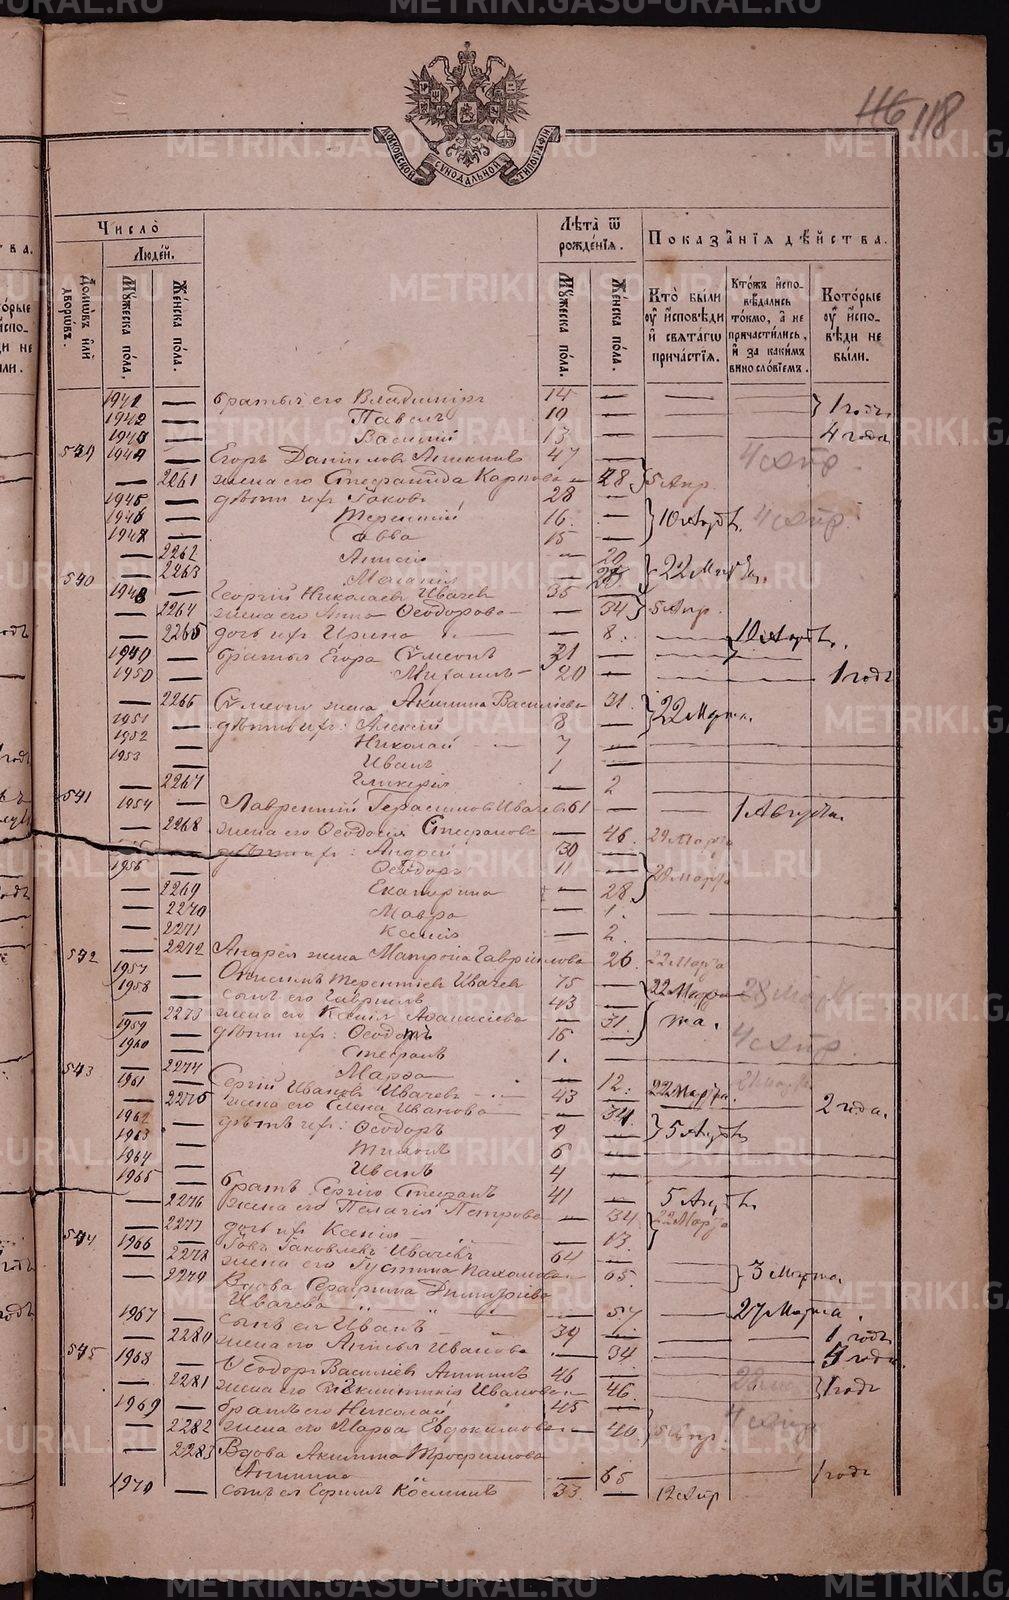 METRIKI.GASO-URAL.RU
118
МОСКОВСКОЙ СУНОДАЛЬНОЙ ТИПОГРАФІИ
Число
Людей.
Домовъ или дворовъ.
Мужеска пола.
Женска пола.
Лѣта ѿ рожденїя.
Мужеска пола.
Женска пола.
Показанїя дѣйства.
Кто были у исповѣди и святагѡ причастїя.
Ктожъ исповѣдались токмо, а не причастились, и за какимъ винословїемъ.
Которые у исповѣди не были.
1941 — братья его Владимiръ 14 — — —
1942 — Павелъ 19 — — — 1 годъ.
1943 — Василiй 13 — — — 4 года
539 1944 — Егоръ Даниловъ Аникинъ 47 —
— 2261 жена его Стефанида Карпова — 48 5 Апр.
1945 — дѣти ихъ Iаковъ 28 —
1946 — Терентiй 16. —
1947 — Савва 15 —
— 2262 Анисiя — 20
— 2263 Меланiя — 22 Марта.
540 1948 — Георгiй Николаевъ Ивачевъ 35 —
— 2264 жена его Анна Ѳеодорова — 34 5 Апр.
— 2265 дочь ихъ Ирина — 8.
1949 — братья Егора Сѵмеонъ 31 —
1950 — Михаилъ 20 — 1 годъ
— 2266 Сѵмеону жена Акилина Василiева 31.
1951 — дѣти ихъ: Алексiй 8 — 22 Марта.
1952 — Николай 7 —
1953 — Иванъ 1 —
— 2267 Гликерiя — 2
541 1954 — Лаврентiй Герасимовъ Ивачевъ 61 — 1 Августа.
— 2268 жена его Ѳеодосiя Стефанова — 46. 29 Марта
дѣти ихъ: Андрей 30 —
1956 — Ѳеодоръ 11 —
— 2269 Екатерина — 28
— 2270 Мавра — 1.
— 2271 Ксенiя — 2.
542 — 2272 Андрея жена Матрона Гаврилова 26 22 Марта
1957 — Онисимъ Терентiевъ Ивачевъ 75 —
1958 — сынъ его Гаврiилъ 43 — 22 Марта.
— 2273 жена его Ксенiя Аѳанасiева — 31.
1959 — дѣти ихъ: Ѳеодоръ 16 —
1960 — Стефанъ 1. —
— 2274 Марѳа — 12. 22 Марта.
543 1961 — Сергiй Ивановъ Ивачевъ 43 — 2 года.
— 2275 жена его Елена Иванова — 34
1962 — дѣти ихъ: Ѳеодоръ 9 —
1963 — Тихонъ 6 —
1964 — Иванъ 4 —
1965 — братъ Сергiю Стефанъ 41 — 5 Апр.
— 2276 жена его Пелагiя Петрова — 34 22 Марта
— 2277 дочь ихъ Ксенiя — 13.
544 1966 — Iовъ Iаковлевъ Ивачевъ 64 —
— 2278 жена его Iустина Пахомова — 65. 3 Марта.
— 2279 Вдова Серафима Димитрiева
Ивачева — 57 27 Марта.
1967 — сынъ ея Иванъ 39 — 1 годъ
— 2280 жена его Анна Иванова — 34
545 1968 — Ѳеодоръ Василiевъ Аникинъ 46 —
— 2281 жена его Иванова — 46. 1 годъ
1969 — братъ его Николай 45 —
— 2282 жена его Марѳа Евдокимова — 40 5 Апр.
— 2283 Вдова Акилина Трофимова
Аникина — 65 1 годъ
1970 — сынъ ея Ефимъ Косминъ 33. — 12 Апр